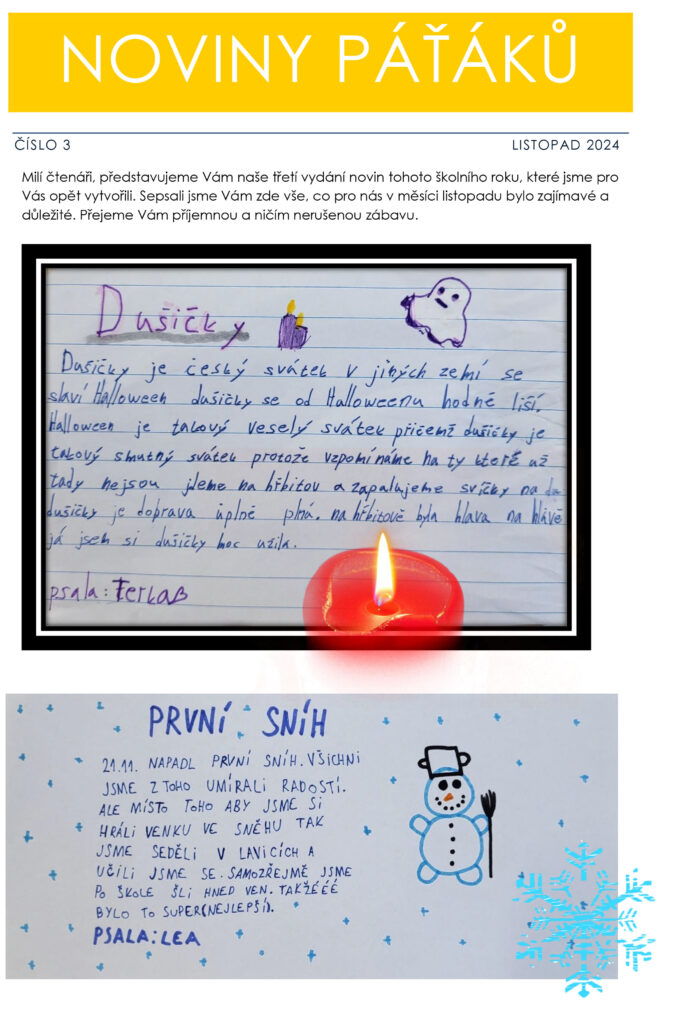 NOVINY PÁŤÁKŮ
ČÍSLO 3
LISTOPAD 2024
Milí čtenáři, představujeme Vám naše třetí vydání novin tohoto školního roku, které jsme pro
Vás opět vytvořili. Sepsali jsme Vám zde vše, co pro nás v měsíci listopadu bylo zajímavé a
důležité. Přejeme Vám příjemnou a ničím nerušenou zábavu.
Dušičky
Dušičky je český svátek v jiných zemí se
slaví Halloween dušičky se od Halloweenu hodně liší.
Halloween je takový veselý svátek přičemž dušičky je
takový smutný svátek protože vzpomínáme na ty kteří už
tady nejsou jdeme na hřbitov a zapalujeme svíčky na
dušičky je doprava úplně plná. na hřbitově byla hlava na hlávě
já jsem si dušičky moc užila.
psala: TerkaB
PRVNÍ SNÍH
21.11. NAPADL PRVNÍ SNÍH. VŠICHNI
JSME Z TOHO UMÍRALI RADOSTÍ.
ALE MÍSTO TOHO ABY JSME SI
HRÁLI VENKU VE SNĚHU TAK
JSME SEDĚLI V LAVICÍCH A
UČILI JSME SE. SAMOZŘEJMĚ JSME
PO ŠKOLE ŠLI HNED VEN. TAKŽÉÉÉ
BYLO TO SUPER(NEJLEPŠÍ).
PSALA: LEA